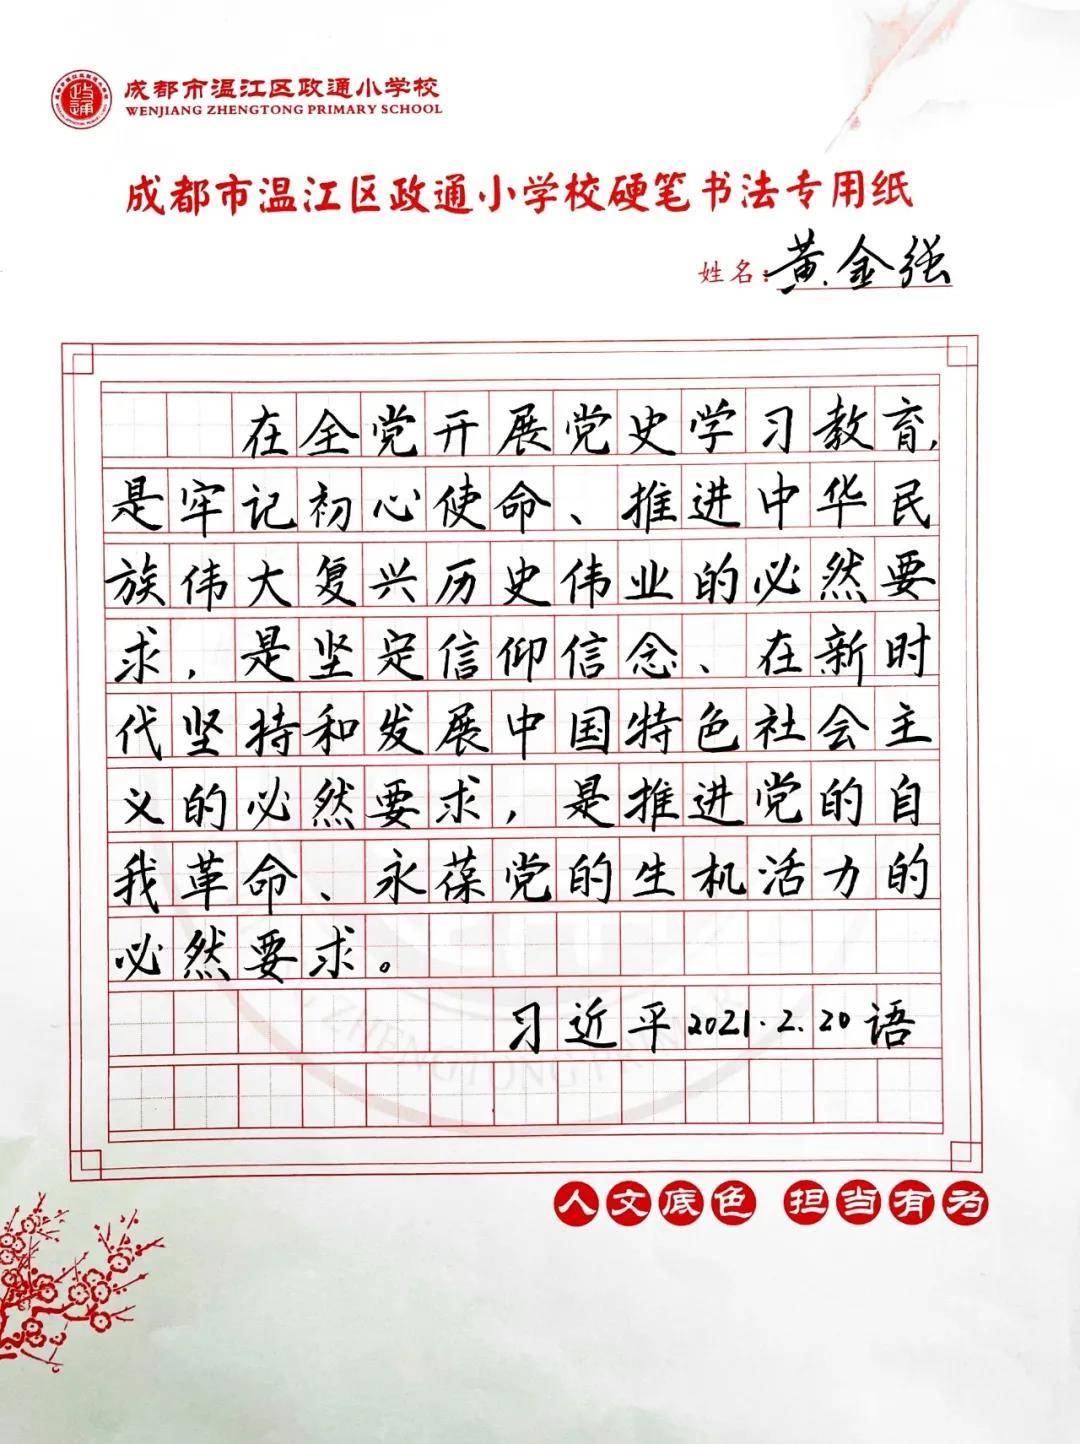 成都市温江区政通小学校
WENJIANG ZHENGTONG PRIMARY SCHOOL
成都市温江区政通小学校硬笔书法专用纸
姓名：黄金强
在全党开展党史学习教育，
是牢记初心使命、推进中华民
族伟大复兴历史伟业的必然要
求，是坚定信仰信念、在新时
代坚持和发展中国特色社会主
义的必然要求，是推进党的自
我革命、永葆党的生机活力的
必然要求。
习近平2021.2.20语
人文底色 担当有为